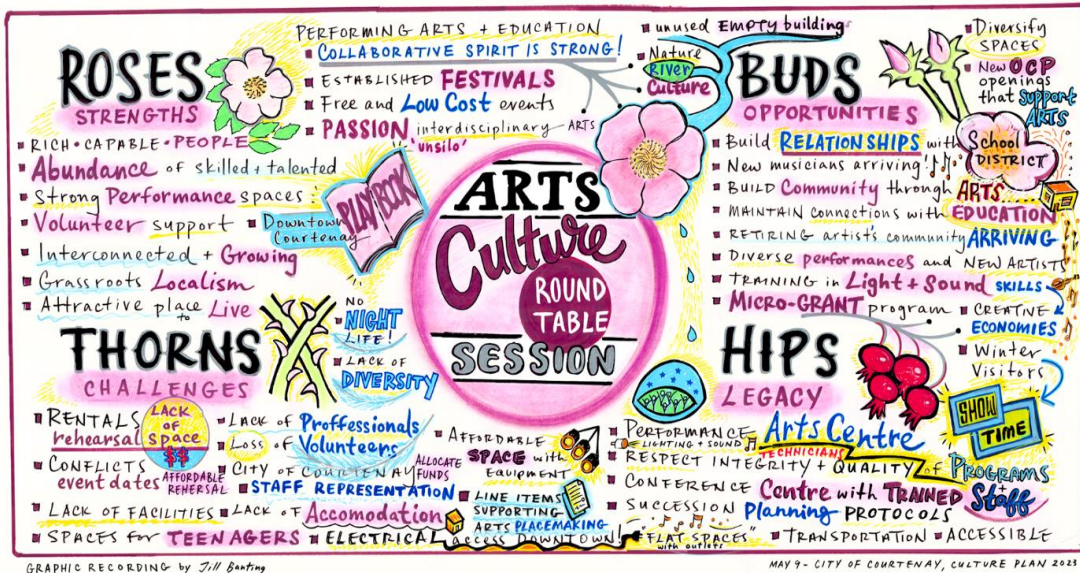 ROSES
STRENGTHS
RICH • CAPABLE • PEOPLE
Abundance of skilled + talented
Strong Performance spaces
Volunteer support
Downtown Courtenay
Interconnected + Growing
Grassroots Localism
Attractive place to Live
PLAYBOOK
PERFORMING ARTS + EDUCATION
COLLABORATIVE SPIRIT IS STRONG!
ESTABLISHED FESTIVALS
Free and Low Cost events
PASSION interdisciplinary ARTS
'unsilo'
ARTS
Culture
ROUND
TABLE
SESSION
BUDS
OPPORTUNITIES
unused EMPTY buildings
Nature
River
Culture
Diversify
SPACES
New OCP
openings
that support
ARTS
Build RELATIONSHIPS with
School
DISTRICT
New musicians arriving
BUILD Community through ARTS...
MAINTAIN connections with EDUCATION
RETIRING artist's community ARRIVING
Diverse performances and NEW ARTISTS
TRAINING in Light + Sound SKILLS
MICRO-GRANT program
CREATIVE
ECONOMIES
Winter
Visitors
THORNS
CHALLENGES
NO
NIGHT
LIFE!
LACK OF
DIVERSITY
RENTALS
rehearsal
LACK
OF
Space
$$
AFFORDABLE
REHERSAL
CONFLICTS
event dates
LACK OF FACILITIES
SPACES for TEENAGERS
Lack of Proffessionals
Loss of Volunteers
CITY OF COURTENAY
ALLOCATE
FUNDS
STAFF REPRESENTATION
LACK OF Accomodation
ELECTRICAL access DOWNTOWN!
AFFORDABLE
SPACE with
EQUIPMENT
LINE ITEMS
SUPPORTING
ARTS PLACEMAKING
HIPS
LEGACY
SHOW
TIME
PERFORMANCE Arts Centre
LIGHTING + SOUND TECHNICIANS
RESPECT INTEGRITY + QUALITY of PROGRAMS
+ Staff
CONFERENCE Centre with TRAINED
SUCCESSION Planning PROTOCOLS
"FLAT SPACES"
with outlets
TRANSPORTATION
ACCESSIBLE
GRAPHIC RECORDING by Jill Banting
MAY 9 - CITY OF COURTENAY, CULTURE PLAN 2023